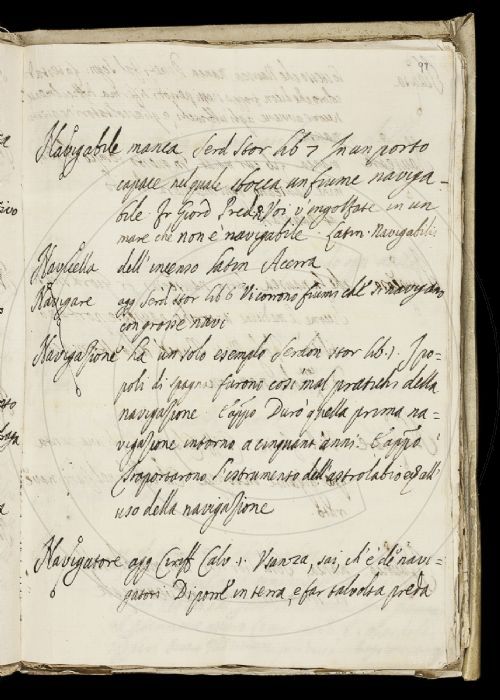 97
Navigabile manca Serd Stor lib 7 In un porto
capace nel quale sbocca un fiume naviga-
bile. Fr Giord Pred R Voi v'ingolfate in un
mare che non è navigabile. Latin. Navigabilis
Navicella dell'incenso latin Acerra
Navigare agg Serd stor lib 6 Vi corrono fiumi che si navigano
con grosse navi
Navigazione ha un solo esempio Serdon stor lib. 1. I po-
poli di Spagna furono così mal pratichi della
navigazione. E appo Durò quella prima na-
vigazione intorno a cinquant'anni. E appo
trasportarono l'istrumento dell'astrolabio all'
uso della navigazione
Navigatore agg Ciriff Calv 1. Usanza, sai, ch'è de' navi-
gatori Di porre in terra, e far talvolta preda